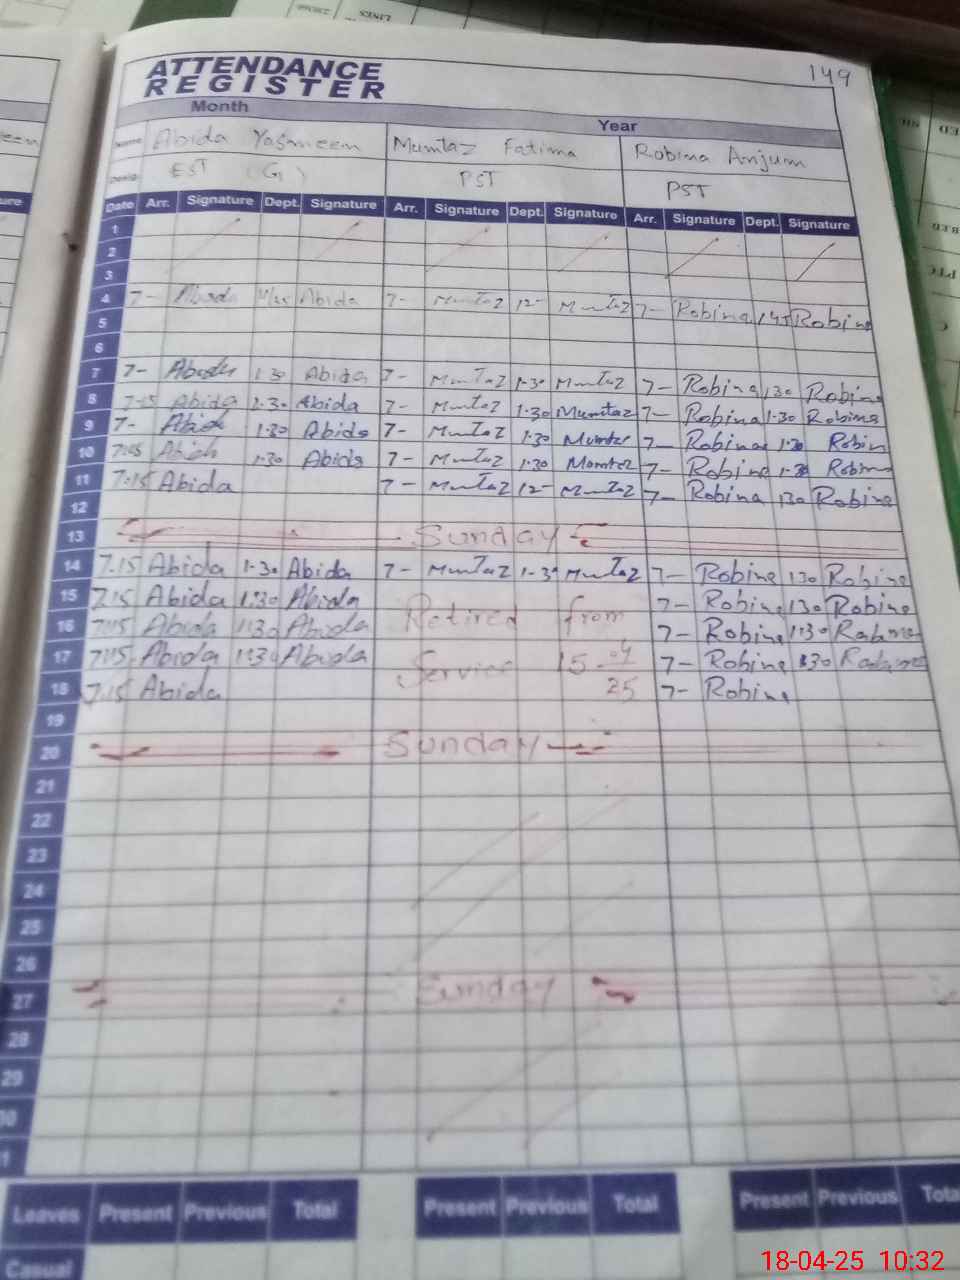 149
ATTENDANCE
REGISTER
Month Year
Name Abida Yasmeen Mumtaz Fatima Robina Anjum
Desig. EST (G) PST PST
Date Arr. Signature Dept. Signature Arr. Signature Dept. Signature Arr. Signature Dept. Signature
1
2
3
4 7- Abida Abida 7- Mumtaz 12- Mumtaz 7- Robina Robina
5
6
7 7- Abida 1.30 Abida 7- Mumtaz 1.30 Mumtaz 7- Robina 1.30 Robina
8 7.15 Abida 1.30 Abida 7- Mumtaz 1.30 Mumtaz 7- Robina 1.30 Robina
9 7- Abida 1.30 Abida 7- Mumtaz 1.30 Mumtaz 7- Robina 1.30 Robina
10 7.15 Abida 1.30 Abida 7- Mumtaz 1.30 Mumtaz 7- Robina 1.30 Robina
11 7.15 Abida 7- Mumtaz 12- Mumtaz 7- Robina 1.30 Robina
12
13 Sunday
14 7.15 Abida 1.30 Abida 7- Mumtaz 1.30 Mumtaz 7- Robina 1.30 Robina
15 7.15 Abida 1.30 Abida Retired from 7- Robina 1.30 Robina
16 7.15 Abida 1.30 Abida 7- Robina 1.30 Robina
17 7.15 Abida 1.30 Abida Service 15-04 7- Robina 1.30 Robina
18 7.15 Abida 25 7- Robina
19
20 Sunday
21
22
23
24
25
26
27 Sunday
28
29
Leaves Present Previous Total Present Previous Total Present Previous
Casual
18-04-25 10:32